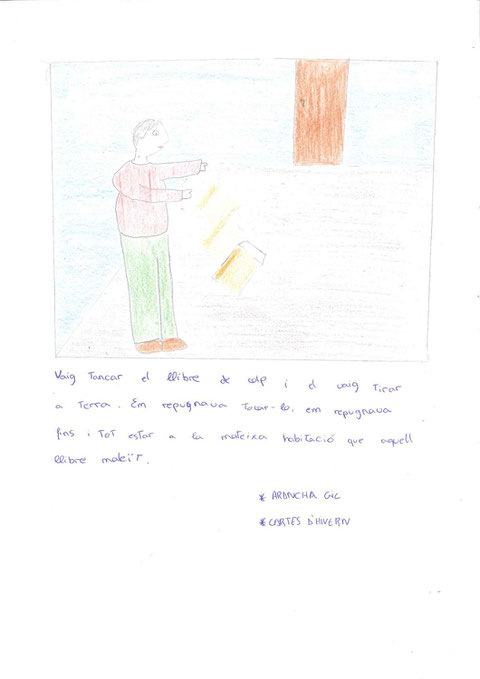 Vaig Tancar el llibre de cop i el vaig Tirar
a Terra. Em repugnava Tocar-lo, em repugnava
fins i ToT estar a la mateixa habitació que aquell
llibre maleïT.
* ARANCHA GIL
* CARTES D'HIVERN